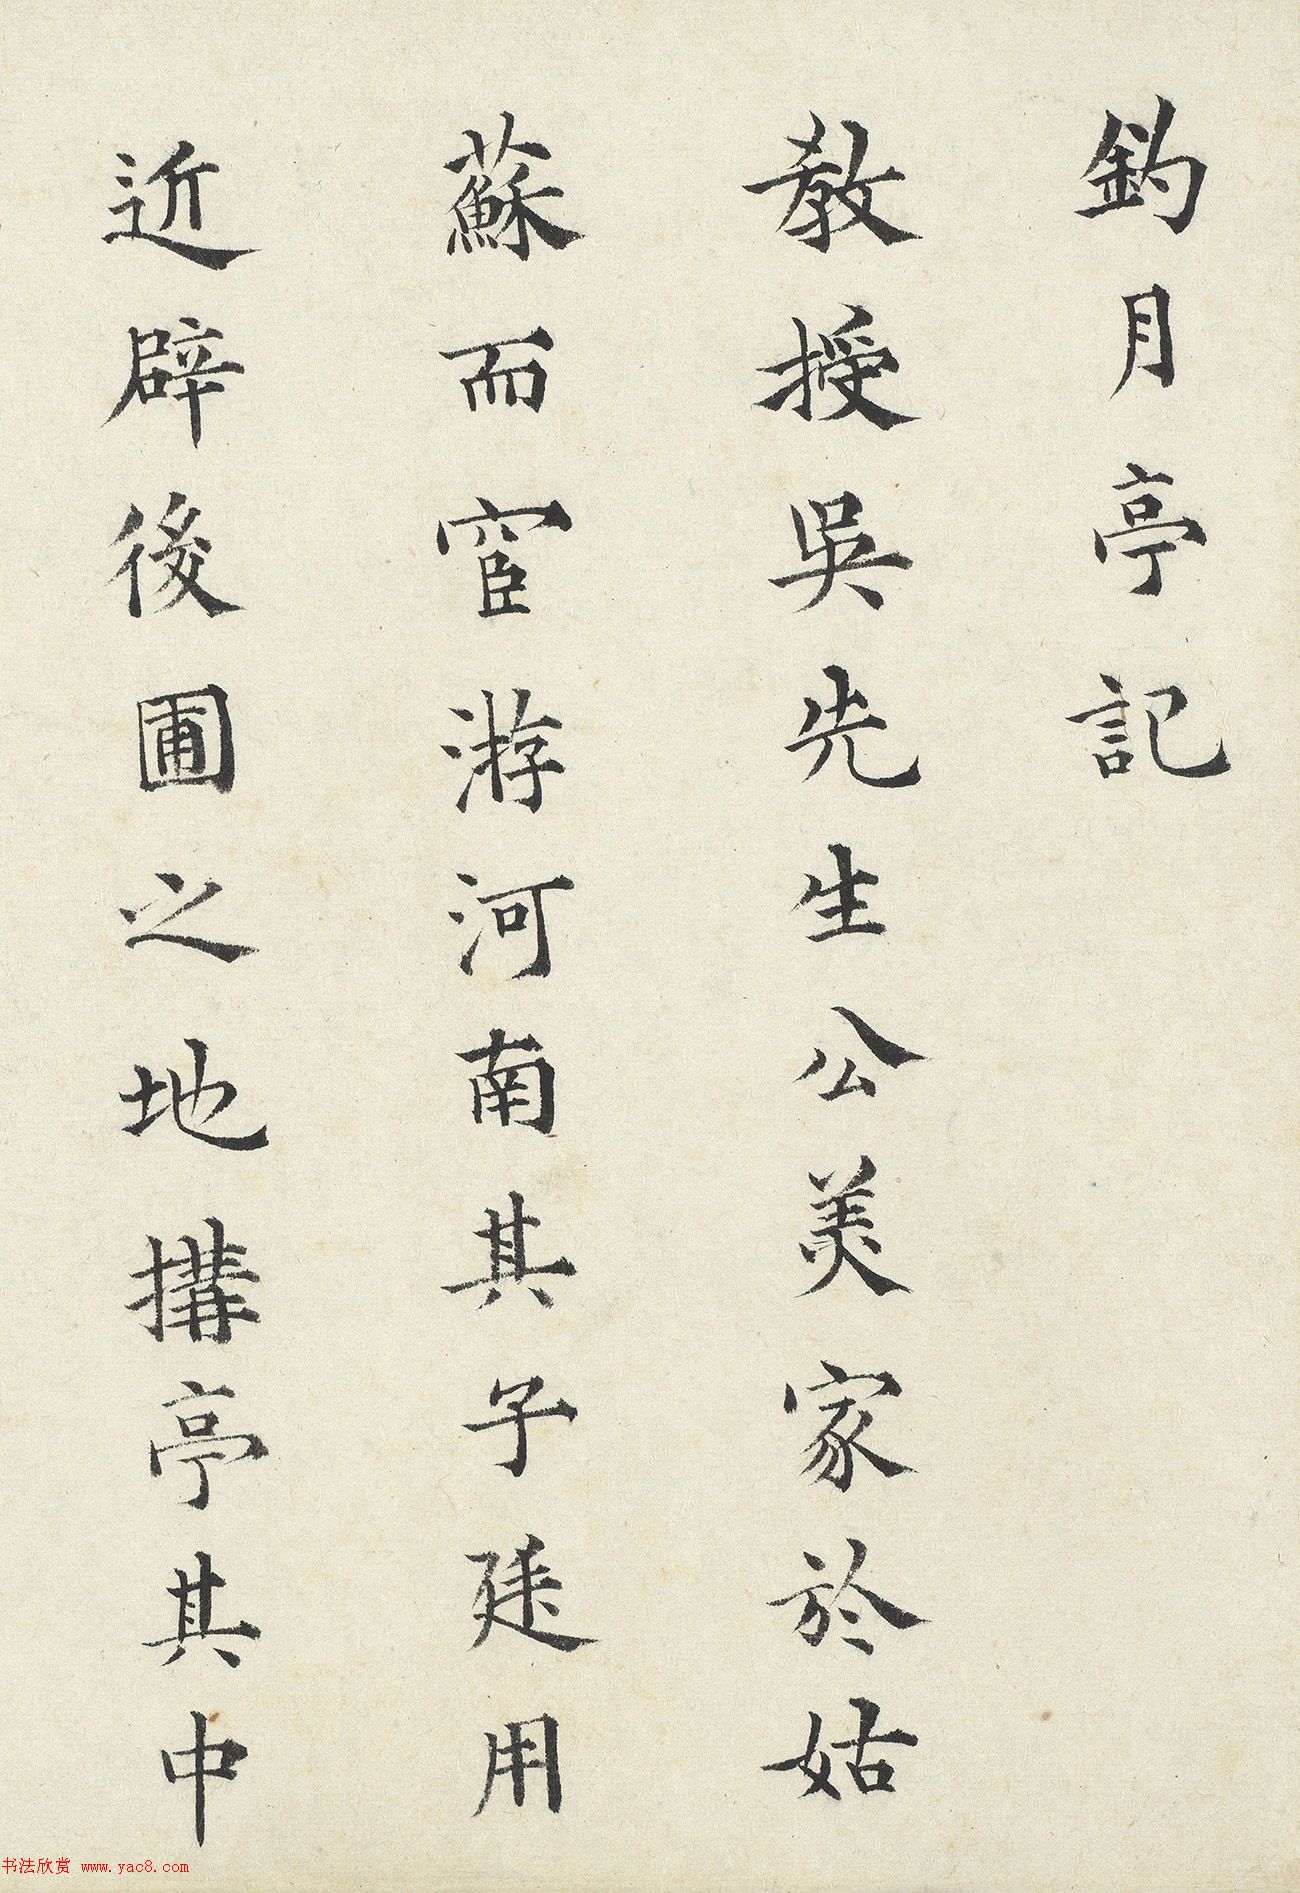 釣月亭記
教授吳先生公美家於姑
蘇而宦游河南其子延用
近辟後圃之地搆亭其中
书法欣赏 www.yac8.com